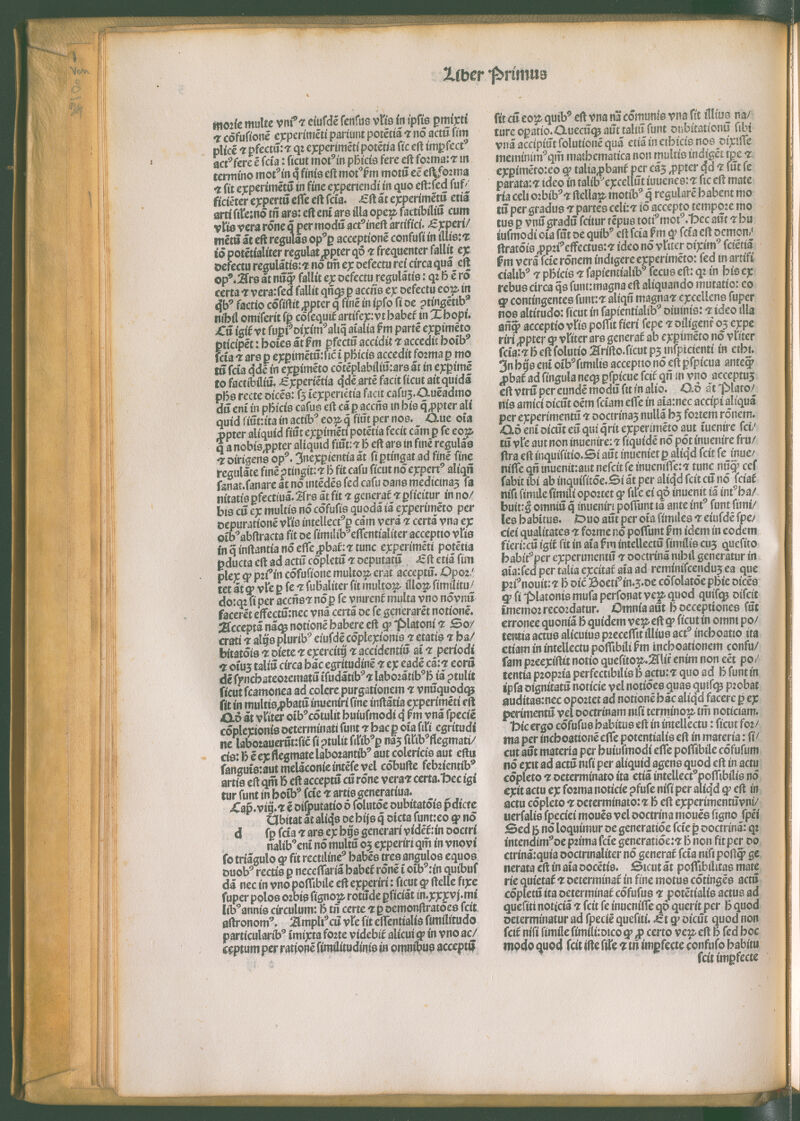 Liber Primus
morie multe vniꝰ ⁊ eiusdē sensus vl̄is in ipsis pmixti
⁊ cōfusionē experimēti pariunt potētiā ⁊ nō actū sim
plicē ⁊ pfectū: ⁊ qꝛ experimēti potētia sic est impfectꝰ
actꝰ fere ē scīa: sicut motꝰ in phicis fere est forma: ⁊ in
termino motꝰ in q̄ finis est motꝰ fm motū eē est forma
⁊ sit experimētū in fine experiendi in quo est: sed suf/
ficiēter expertū esse est scīa. Est āt experimētū etiā
arti sīle: nō tn̄ ars: est eni ars illa opeꝝ factibiliū cum
vl̄is vera rōne q̄ per modū actꝰ inest artifici. Experi/
mētū āt est regulās opꝰ ꝑ acceptionē confusi in illis: ⁊
iō potētialiter regulat ꝓpter qd̄ ⁊ frequenter fallit ex
defectu regulātis: ⁊ nō tm̄ ex defectu rei circa quā est
opꝰ. Ars āt nūqꝫ fallit ex defectu regulātis: qꝛ h̄ ē rō
certa ⁊ vera: sed fallit qn̄qꝫ ꝑ accn̄s ex defectu eoꝝ in
qͥbꝰ factio cōsistit ꝓpter q̄ finē in ipso si de ꝯtingētibꝰ
nihil omiserit sꝑ cōsequit artifex: vt habet in Thopi.
Cū igit̄ vt supiꝰ dixim̄ꝰ aliq̄ aīalia fm partē expimēto
pticipēt: hoīes āt fm pfectū accidit ⁊ accedit hoībꝰ
scīa ⁊ ars ꝑ expimētū: sic ī phicis accedit forma ꝑ mo
tū scīa qdē in expimēto cōtēplabiliū: ars āt in expimē
to factibiliū. Experiētia qdē artē facit sicut ait quidā
phs recte dicēs: sꝫ īexperiētia facit casuꝫ. Queādmo
dū eni in phicis casus est cā ꝑ accn̄s in his q̄ ꝓpter ali
quid fiūt: ita in actibꝰ eoꝝ q̄ fiūt per nos. Que oīa
ꝓpter aliquid fiūt expimēti potētia fecit cām ꝑ se eoꝝ
q̄ a nobis ꝓpter aliquid fiūt: ⁊ h̄ est ars in finē regulās
⁊ dirigens opꝰ. Inexpientia āt si ptingat ad finē sine
regulāte finē ꝯtingit: ⁊ h̄ fit casu sicut nō expertꝰ aliqn̄
sanat. sanare āt nō intēdēs sed casu dans medicinaꝫ sa
nitatis pfectiuā. Ars āt fit ⁊ generat̄ ⁊ pficitur in no/
bis cū ex multis nō cōfusis quodā iā experimēto per
depurationē vl̄is intellectꝰ ꝑ cām vera ⁊ certā vna ex
oībꝰ abstracta fit de similibꝰ essentialiter acceptio vl̄is
in q̄ instantia nō esse ꝓbat̄: ⁊ tunc experimēti potētia
pducta est ad actū cōpletū ⁊ deputatū Est etiā sim
plex qͥ priꝰ in cōfusione multoꝝ erat acceptū. Opor/
tet āt qͥ vl̄e ꝑ se ⁊ substaliter sit multoꝝ illoꝝ similitu/
do: qꝛ si per accn̄s ⁊ nō ꝑ se vnirent multa vno nō vnū
facerēt effectū: nec vna certā de se generarēt notionē.
Acceptā nāqꝫ notionē habere est qͥ Platoni ⁊ So/
crati ⁊ alijs pluribꝰ eiusdē cōplexionis ⁊ etatis ⁊ ha/
bitatōis ⁊ diete ⁊ exercitij ⁊ accidentiū aī ⁊ periodi
⁊ oīuꝫ taliū circa hāc egritudinē ⁊ ex eadē cā: ⁊ eorū
dē synchateorematū īsudātibꝰ ⁊ laborātibꝰ h̄ iā ꝯtulit
sicut scamonea ad colere purgationem ⁊ vnūquodqꝫ
sit in multis ꝓbatū inueniri sine instātia experimēti est
Qd̄ āt vl̄iter oībꝰ cōtulit huiusmodi qͥ fm vnā speciē
cōplexionis determinati sunt ⁊ hac ꝑ oīa sīli egritudi
ne laborauerūt: sicē si ꝯtulit sīlibꝰ ꝑ nāꝫ sīlibꝰ flegmati/
cis: h̄ ē ex flegmate laborantibꝰ aut colericis aut estu
sanguīs: aut melācōnie intēse vel cōbuste febrientibꝰ
artis est qm̄ h̄ est acceptū cū rōne vera ⁊ certa. Hec igi
tur sunt in hoībꝰ scīe ⁊ artis generatiua.
Cap. viij. ⁊ ē disputatio d̄ solutōe dubitatōis p̄dicte
d Vbitat āt aliqͥs de hijs q̄ dicta sunt: eo qͥ nō
sꝑ scīa ⁊ ars ex hijs generari videt̄: in doctri
nalibꝰ eni nō multū oꝫ experiri qm̄ in vno vi
so triāgulo qͥ sit rectilineꝰ habēs tres angulos equos
duobꝰ rectis ꝑ necessariā habet rōnē ī oībꝰ: in quibus
dā nec in vno possibile est experiri: sicut qͥ stelle fixe
super polos orbis signoꝝ rotūde pficiāt in .xxxvj. mi
libꝰ annis circulum: h̄ tn̄ certe ⁊ ꝑ demonstratōes scit
astronomꝰ. Ampliꝰ cū vl̄e sit essentialis similitudo
particularibꝰ īmixta forte videbit alicui qͥ in vno ac/
ceptum per rationē similitudinis in omnibus acceptū
sit cū eoꝝ quibꝰ est vna nā cōmunis vna sit illius na/
ture opatio. Quecūqꝫ aut taliū sunt dubitationū sibi
vnā accipiūt solutionē quā etiā in ethicis nos dixisse
meminimꝰ qm̄ mathematica non multis indigēt tpe ⁊
expimēto: eo qͥ talia ꝓbant̄ per cāꝫ ꝓpter qd̄ ⁊ sūt se
parata: ⁊ ideo in talibꝰ excellūt iuuenes: ⁊ sic est mate
ria celi orbibꝰ ⁊ stellaꝝ motibꝰ q̄ regularē habent mo
tū per gradus ⁊ partes celi: ⁊ iō accepto tempore mo
tus ꝑ vnū gradū scitur tēpus totiꝰ motꝰ. Hec aut ⁊ hu
iusmodi oīa sūt de quibꝰ est scīa fm qͥ scīa est demon/
stratōis ꝓpriꝰ effectus: ⁊ ideo nō vl̄iter diximꝰ sciētiā
fm verā scīe rōnem indigere experimēto: sed in artifi
cialibꝰ ⁊ phicis ⁊ sapientialibꝰ secus est: qꝛ in his ex
rebus circa q̄s sunt: magna est aliquando mutatio: eo
qͥ contingentes sunt: ⁊ aliqn̄ magna ⁊ excellens super
nos altitudo: sicut in sapientialibꝰ diuinis: ⁊ ideo illa
an̄qꝫ acceptio vl̄is possit fieri sepe ⁊ diligent̄ oꝫ expe
riri ꝓpter qͥ vl̄iter ars generat̄ ab expimēto nō vl̄iter
scīa: ⁊ h̄ est solutio Aristo. sicut pꝫ inspicienti in ethi.
In hijs eni oībꝰ similis acceptio nō est pspicua anteqꝫ
ꝓbat ad singula neqꝫ pspicue scit qn̄ in vno acceptuꝫ
est vtrū per eundē modū sit in alio. Qd̄ āt Plato/
nis amici dicūt oēm sciam esse in aīa: nec accipi aliquā
per experimentū ⁊ doctrinaꝫ nullā hꝫ fortem rōnem.
Qd̄ eni dicūt eū qui qrit experimēto aut īuenire sci/
tū vl̄e aut non inuenire: ⁊ siquidē nō pōt inuenire fru/
stra est inquisitio. Si aūt inueniet ꝑ aliqd̄ scit se inue/
nisse qn̄ inuenit: aut nescit se inuenisse: ⁊ tunc nūqꝫ ces
sabit ibi ab inquisitōe. Si āt per aliqd̄ scit cū nō sciat̄
nisi simile simili oportet qͥ sīle ei qd̄ inuenit iā intꝰ ha/
buit: q̄ omniū q̄ inueniri possunt iā ante intꝰ sunt simi/
les habitus. Duo aūt per oīa similes ⁊ eiusdē spe/
ciei qualitates ⁊ forme nō possunt fm idem in eodem
fieri: cū igit̄ sit in aīa fm intellectū similis cuꝫ quesito
habitꝰ per experimentū ⁊ doctrinā nihil generatur in
aīa: sed per talia excitat̄ aīa ad reminiscenduꝫ ea que
priꝰ nouit: ⁊ h̄ dic̄ Boetiꝰ in .3. de cōsolatōe phie dicēs
qͥ si Platonis musa personat veꝝ quod quisqꝫ discit
īmemor recordatur. Omnia aūt h̄ deceptiones sūt
erronee quoniā h̄ quidem veꝝ est qͥ sicut in omni po/
tentia actus alicuius precessit illius actꝰ inchoatio ita
etiam in intellectu possibili fm inchoationem confu/
sam preexistit notio quesitoꝝ. Alit̄ enim non eēt po/
tentia propria perfectibilis h̄ actu: ⁊ quo ad h̄ sunt in
ipsa dignitatū noticie vel notiōes quas quisqꝫ probat
auditas: nec oportet ad notionē hāc aliqd̄ facere ꝑ ex
perimentū vel doctrinam nisi terminoꝝ tm̄ noticiam.
Hic ergo cōfusus habitus est in intellectu: sicut for/
ma per inchoationē esse potentialis est in materia: si/
cut aūt materia per huiusmodi esse possibile cōfusum
nō exit ad actū nisi per aliquid agens quod est in actu
cōpleto ⁊ determinato ita etiā intellectꝰ possibilis nō
exit actu ex forma noticie ꝯfuse nisi per aliqd̄ qͥ est in
actu cōpleto ⁊ determinato: ⁊ h̄ est experimentū vni/
uersalis speciei mouēs vel doctrina mouēs signo spēi
Sed ꝗꝫ nō loquimur de generatiōe scīe ꝑ doctrinā: qꝛ
intendimꝰ de prima scīe generatiōe: ⁊ h̄ non fit per do
ctrinā: quia doctrinaliter nō generat scīa nisi postqꝫ ge
nerata est in aīa docētis. Sicut āt possibilitas mate
rie quietat̄ ⁊ determinat̄ in fine motus cōtingēs actū
cōpletū ita determinat̄ cōfusus ⁊ potētialis actus ad
quesiti noticiā ⁊ scit se inuenisse qd̄ querit per h̄ quod
determinatur ad speciē quesiti. Et qͥ dicūt quod non
scit̄ nisi simile simili: dico qͥ ꝓ certo veꝝ est h̄ sed hoc
modo quod scit iste sīle ⁊ tn̄ impfecte confuso habitu
scit impfecte